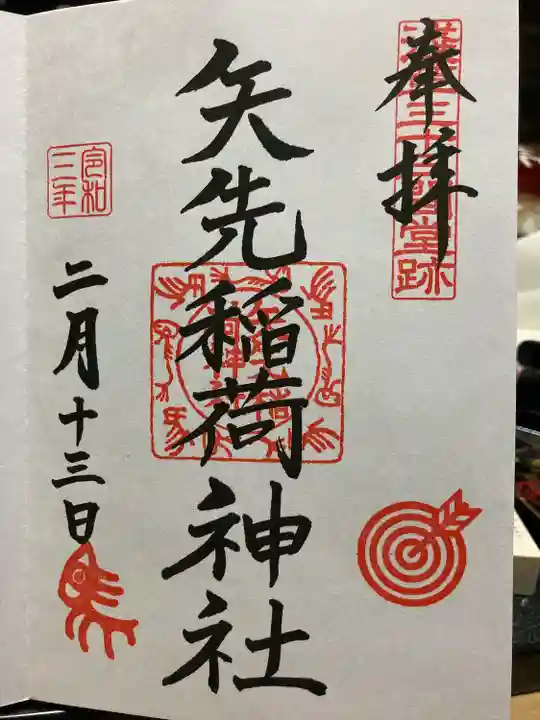 奉拝
三十三間堂跡
矢先稲荷神社
令和
三年
二月十三日